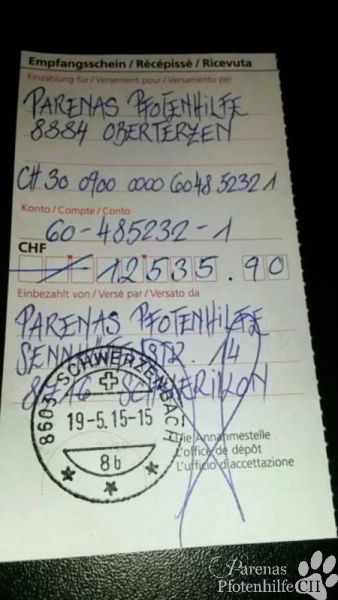 Empfangsschein / Récépissé / Ricevuta
Einzahlung für / Versement pour / Versamento per
PARENAS PFOTENHILFE
8884 OBERTERZEN
CH 30 0900 0000 6048 5232 1
Konto / Compte / Conto
60-485232-1
CHF
12535.90
Einbezahlt von / Versé par / Versato da
PARENAS PFOTENHILFE
STR. 14
8603 SCHWERZENBACH
19-5.15-15
8b
Die Annahmestelle
L'office de dépôt
L'ufficio d'accettazione
Parenas
Pfotenhilfe CH